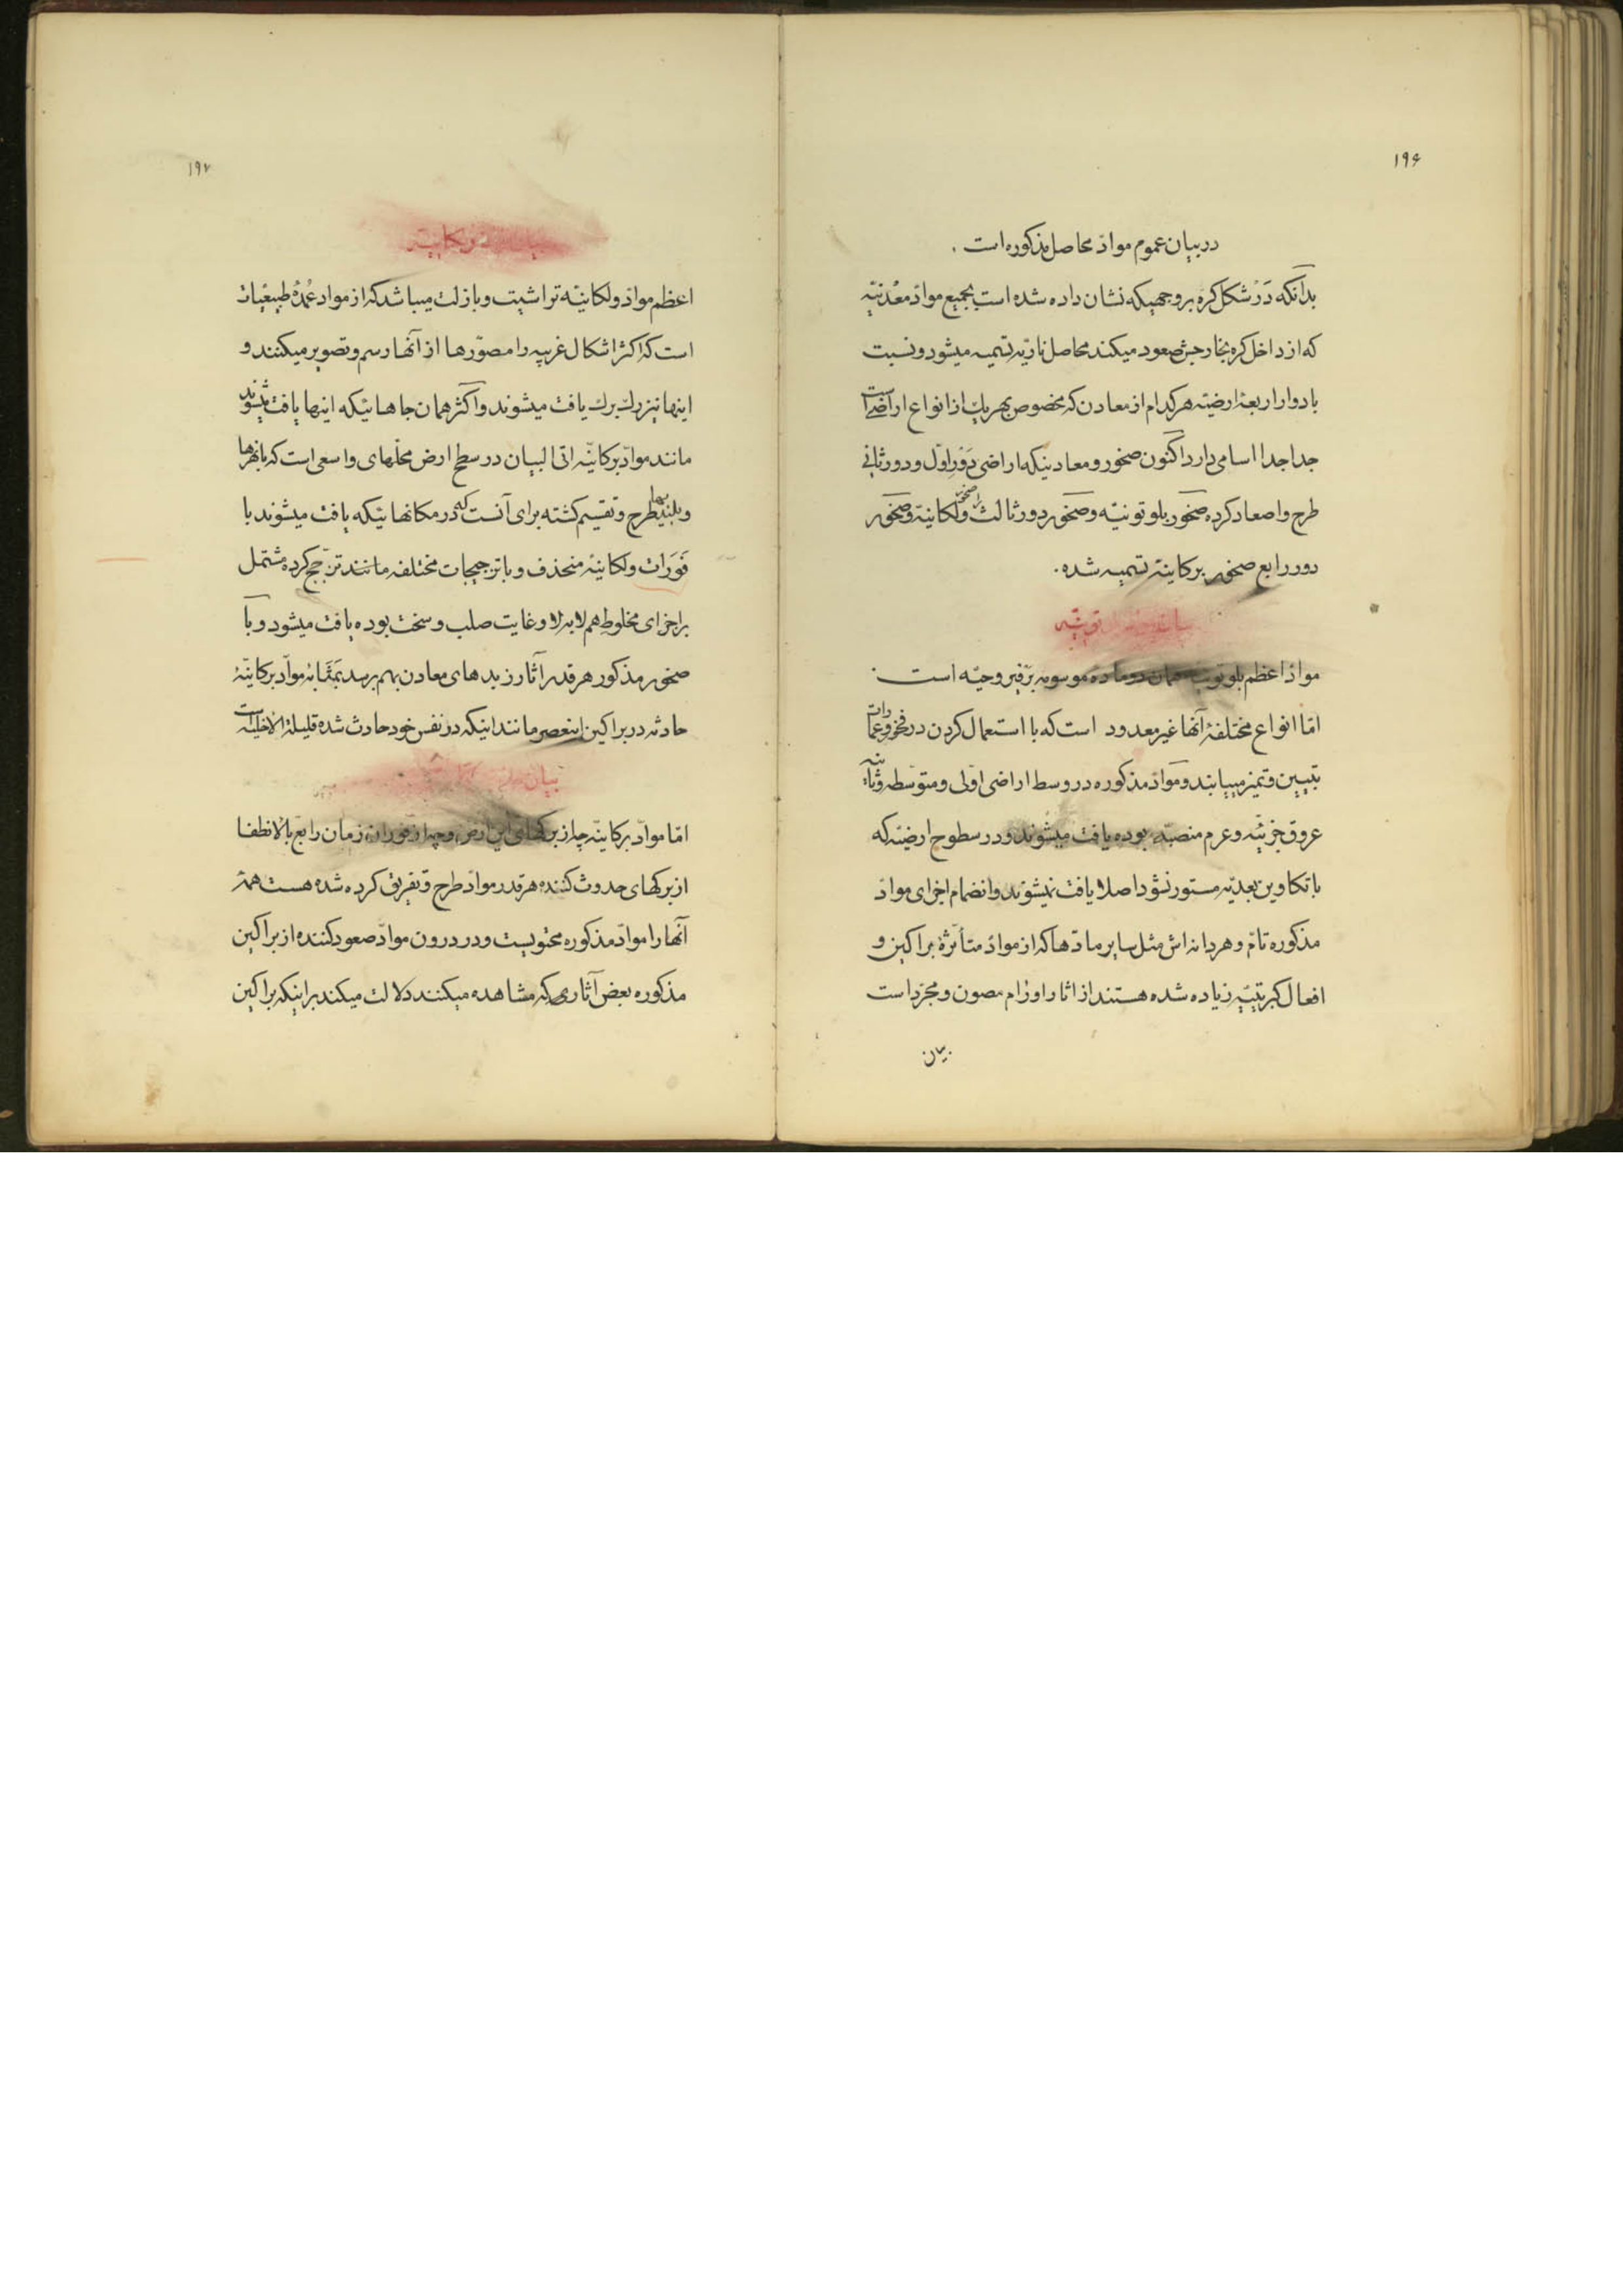 ۱۹۶
در بیان عموم موادّ محاصل مذکوره است .
بدانکه در شکل کره بر وجهیکه نشان داده شده است بجمیع موادّ معدنیّه
که از داخل کره بخارجش صعود میکنند محاصل ناریّه تسمیه میشود و نسبت
بادوار اربعهٔ ارضیّه هر کدام از معادن که مخصوص بهر یک از انواع اراضی است
جدا جدا اسامی دارد اکنون صخور و معادنیکه اراضی دور اوّل و دور ثانی
طرح و اصعاد کرده صخور پلوتونیّه و صخور دور ثالث را صخور ولکانیّه و صخور
دور رابع صخور برکانیّه تسمیه شده .
بیان توتیّه
موادّ اعظم پلوتونیّه همان دو مادّه موسومه بزفیر وحیّه است .
امّا انواع مختلفهٔ آنها غیر معدود است که با استعمال کردن در فخر و عمارات
تبیین و تمیز مییابند و موادّ مذکوره در وسط اراضی اوّلی و متوسّطه و ثانیه
عروق جزئیّه و عرم منصبّه بوده یافت میشوند و در سطوح ارضیّه که
با تکاوین بعدیّه مستور نشود اصلا یافت نمیشوند و انضمام اجزای موادّ
مذکوره تامّ و هر دانه اش مثل سایر مادّها که از موادّ متأثرهٔ براکین و
افعال کبریتیّه زیاده شده هستند از اثار اورام مصون و مجرّد است
بیان
۱۹۷
بیان ولکانیّه
اعظم موادّ ولکانیّه تراشیت و بازلت میباشد که از موادّ عمدهٔ طبیعیّات
است که اکثر اشکال غریبه را مصوّرها از آنها رسم و تصویر میکنند و
اینها نیز رک برک یافت میشوند و اکثر همان جاهائیکه اینها یافت میشوند
مانند موادّ برکانیّه اتی البیان در سطح ارض محلّهای واسعی است که بانهرها
و بلندیها طرح و تقسیم کشته برای آنست که در مکانهائیکه یافت میشوند با
فورات ولکانیّه منحذف و با ترجیجات مختلفه مانند ترجّج کرده مشتمل
بر اجزای مخلوط هم لابه لا و غایت صلب و سخت بوده یافت میشود و با
صخور مذکور هر قدر آثار زبدهای معادن بهم برسد بمثابه موادّ برکانیّهٔ
حادثه در براکین اینعصر مانند اینکه در نفس خود حادث شده قلیلة الاخلیه است
بیان
امّا موادّ برکانیّه چه از برکهای این ارض و چه از فوران زمان رابع بالانطفا
از برکهای حدوث کننده هر قدر موادّ طرح و تفریق کرده شده هست همهٔ
آنها را موادّ مذکوره محتویست و در درون موادّ صعود کننده از براکین
مذکوره بعض آثاری که مشاهده میکنند دلالت میکند بر اینکه براکین